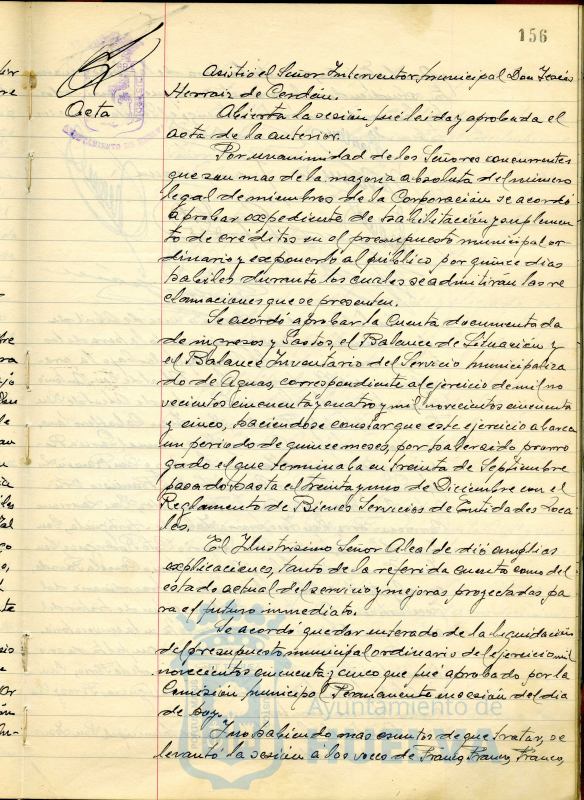 156
Acta
Asistió el Señor Interventor municipal Don
Herraiz de Cerdán.
Abierta la sesión fué leida y aprobada el
acta de la anterior.
Por unanimidad de los Señores concurrentes
que son mas de la mayoria absoluta del número
legal de miembros de la Corporación se acordó
aprobar expediente de habilitación y suplemen
to de créditos en el presupuesto municipal or
dinario y exponerlo al público por quince dias
habiles durante los cuales se admitirán las re
clamaciones que se presenten.
Se acordó aprobar la Cuenta documentada
de ingresos y Gastos, el Balance de Situación y
el Balance Inventario del Servicio municipaliza
do de Aguas, correspondiente al ejercicio de mil no
vecientos cincuenta y cuatro y mil novecientos cincuenta
y cinco, haciendose constar que este ejercicio abarca
un periodo de quince meses, por haber sido prorro
gado el que terminaba en treinta de Septiembre
pasado hasta el treinta y uno de Diciembre con el
Reglamento de Bienes Servicios de Entidades Loca
les.
El Ilustrisimo Señor Alcalde dió amplias
explicaciones, tanto de la referida cuenta como del
estado actual del servicio y mejoras proyectadas pa
ra el futuro inmediato.
Se acordó quedar enterado de la liquidación
del presupuesto municipal ordinario del ejercicio mil
novecientos cincuenta y cinco que fué aprobado por la
Comisión municipal Permanente en sesión del dia
de hoy.
Y no habiendo mas asuntos de que tratar, se
levantó la sesión a las voces de Franco, Franco, Franco,
Ayuntamiento de
HUELVA